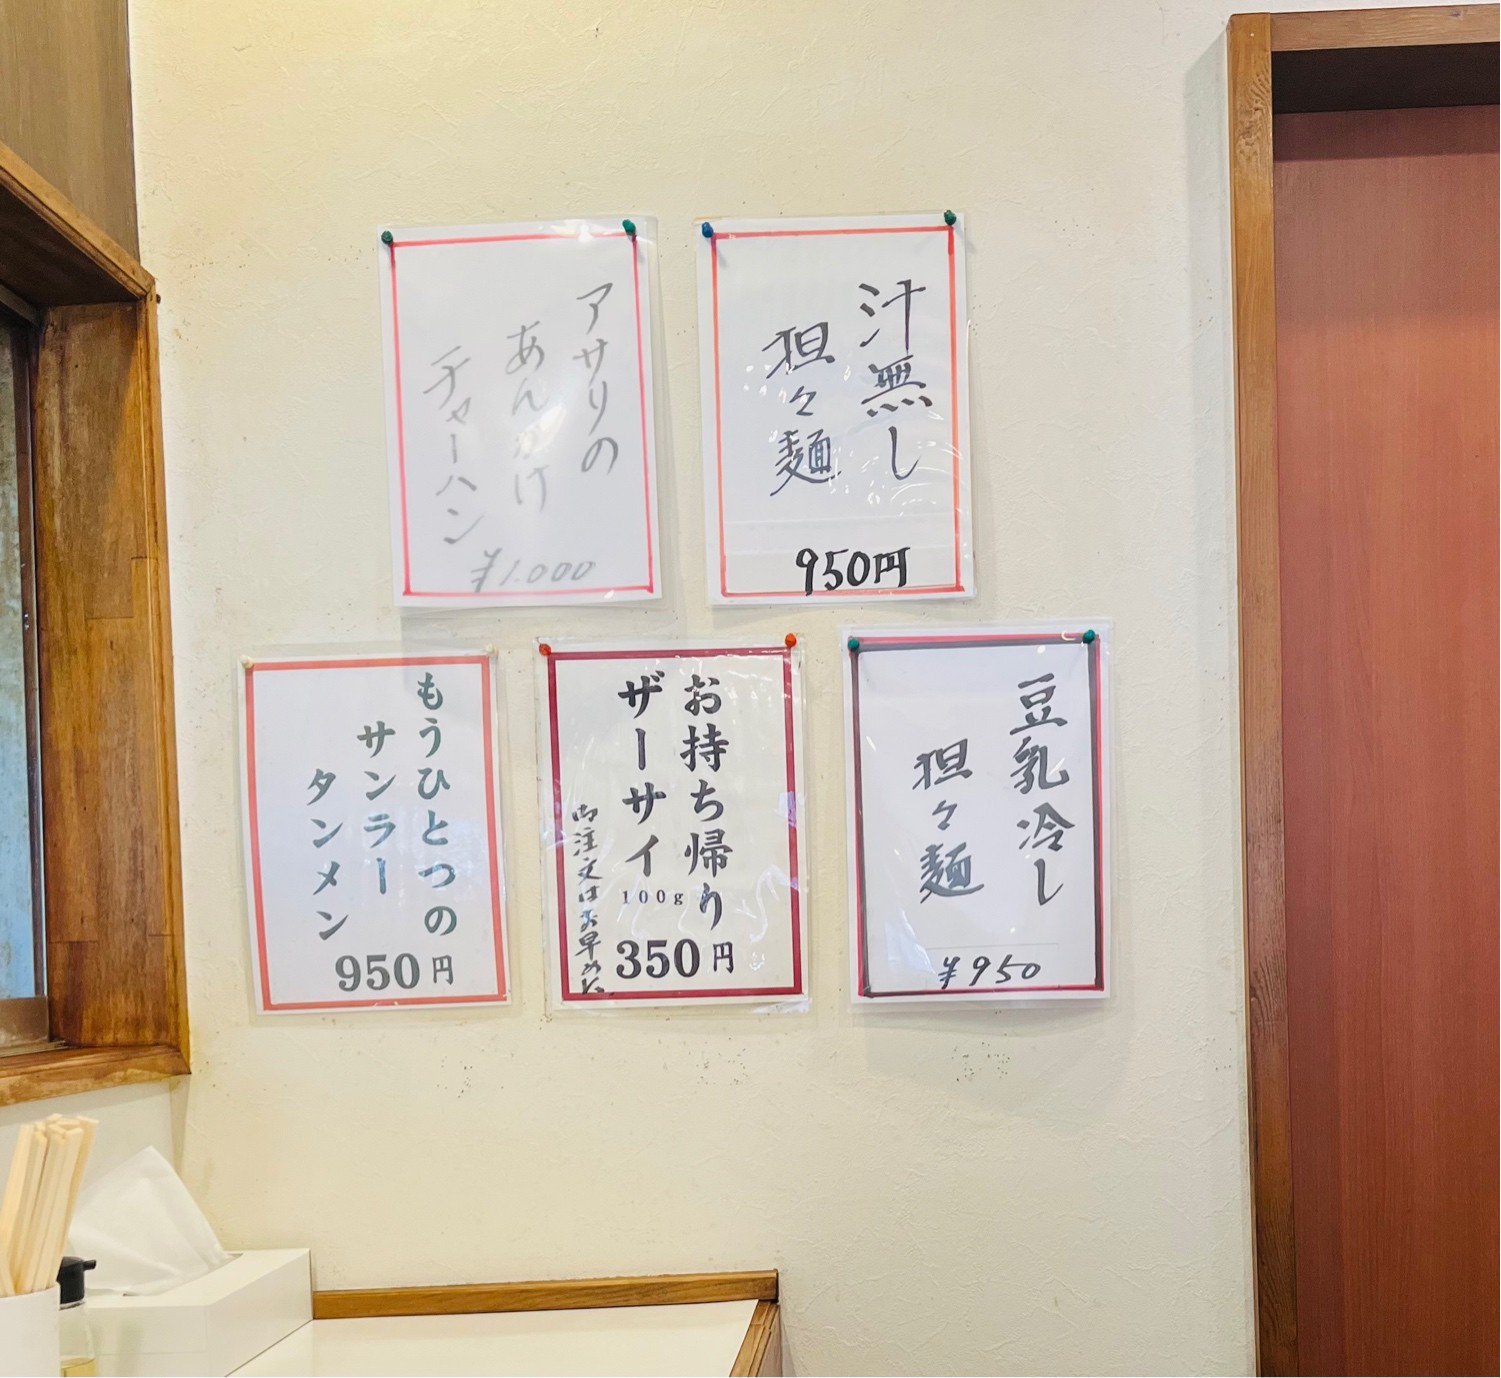 アサリの
あんかけ
チャーハン
¥1.000
汁無し
担々麺
950円
もうひとつの
サンラー
タンメン
950円
お持ち帰り
ザーサイ
100g
350円
御注文はお早めに
豆乳冷し
担々麺
¥950